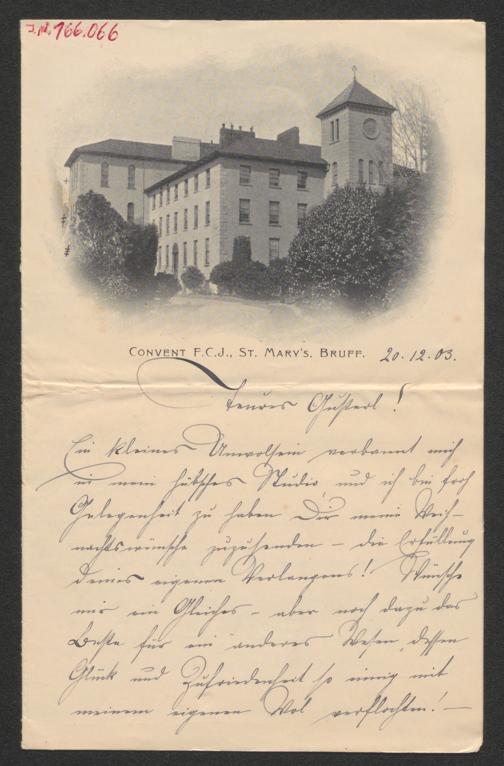 I.N. 166.066
CONVENT F.C.J., ST. MARY'S, BRUFF. 20.12.03.
Teures Gusterl!
Ein kleines Unwolsein verbannt mich
in mein hübsches Studio und ich bin froh
Gelegenheit zu haben Dir meine Weih-
nachtswünsche zuzusenden – die Erfüllung
deines eigenen Verlangens! Wünsche
mir ein Gleiches – aber noch dazu das
Beste für ein anderes Wesen, dessen
Glück und Zufriedenheit so innig mit
meinem eigenen Wol verflochten! –